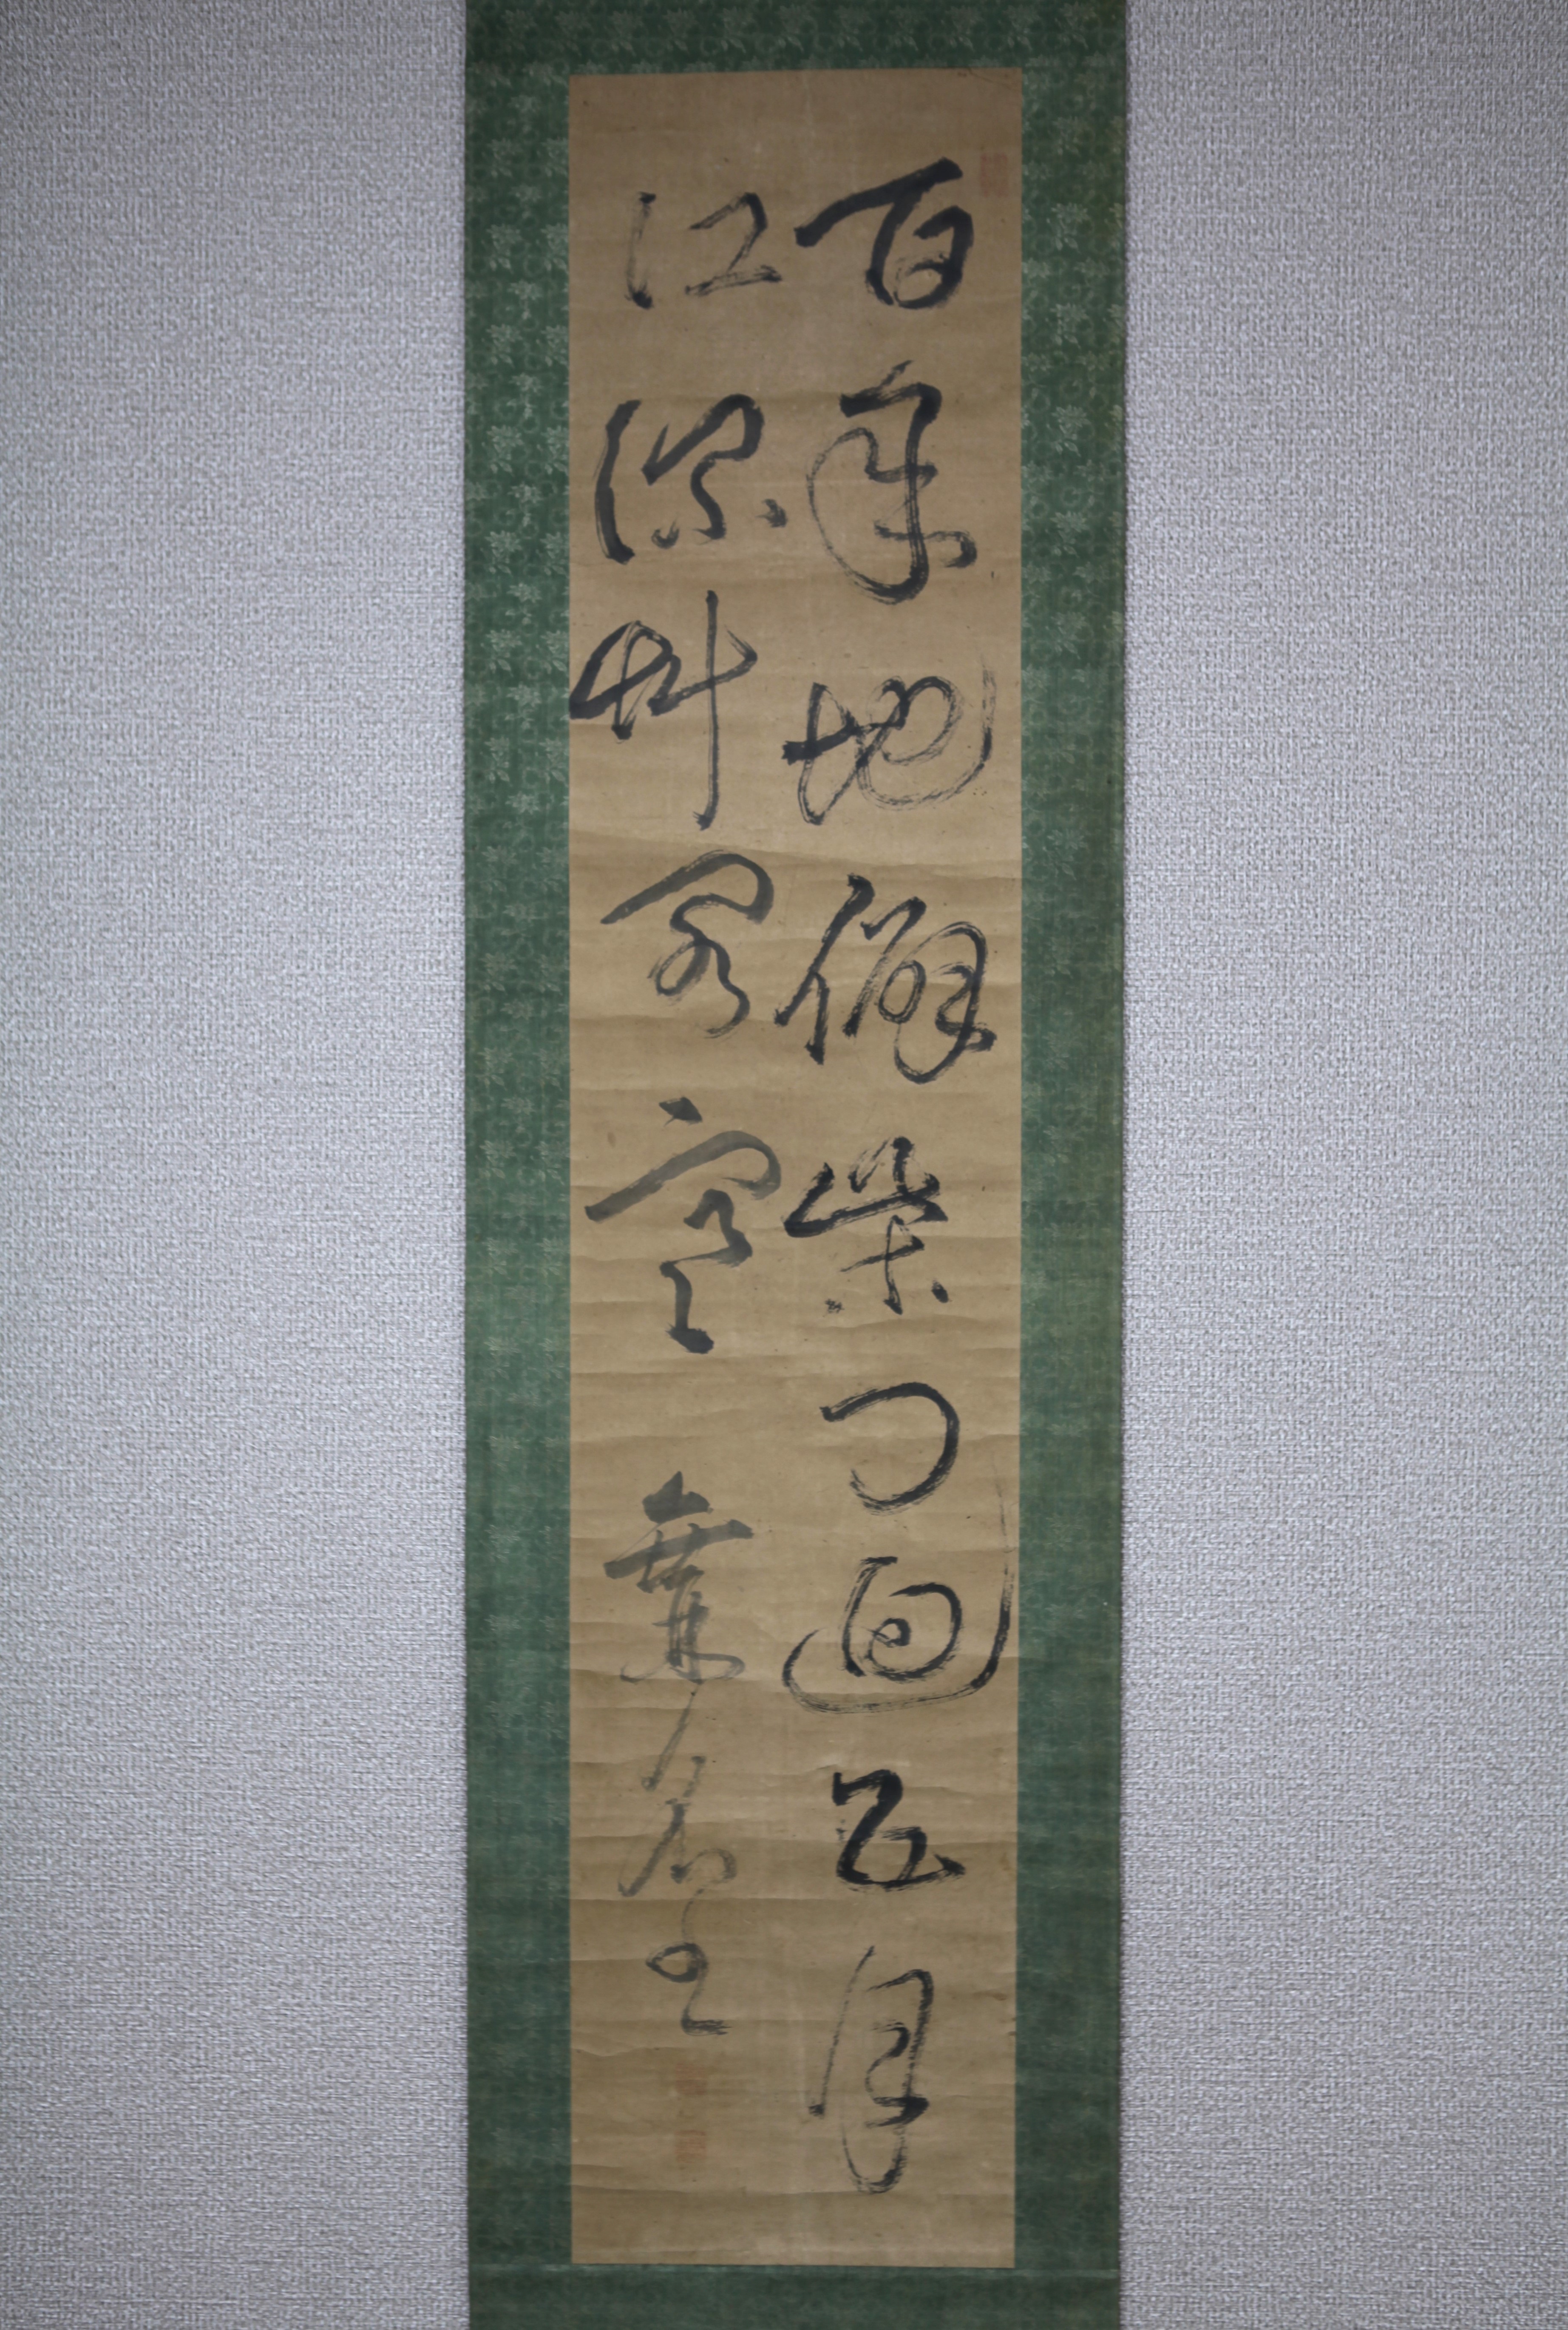 百年地僻柴門迥五月
江深艸閣寒